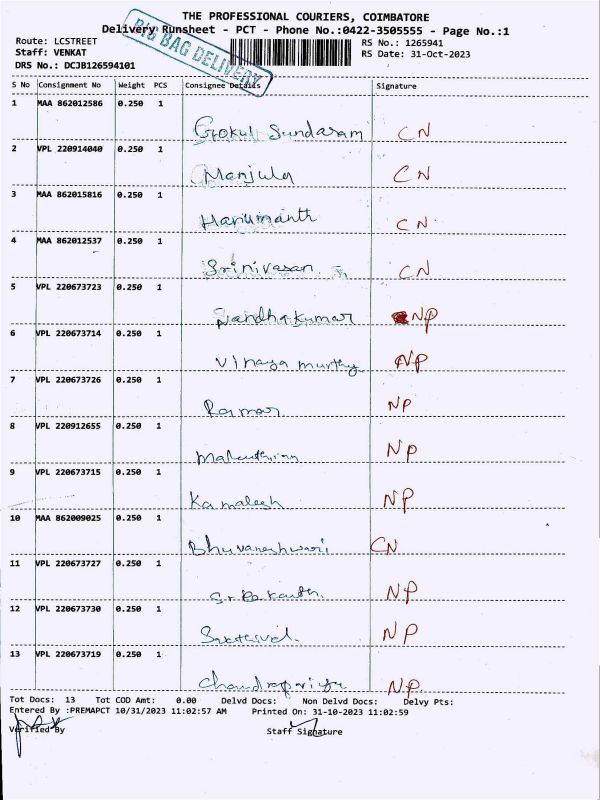 THE PROFESSIONAL COURIERS, COIMBATORE
Delivery Runsheet - PCT - Phone No.:0422-3505555 - Page No.:1
BIG BAG DELIVERY
Route: LCSTREET RS No.: 1265941
Staff: VENKAT RS Date: 31-Oct-2023
DRS No.: DCJB126594101
S No Consignment No Weight PCS Consignee Details Signature
1 MAA 862012586 0.250 1
Gokul Sundaram CN
2 VPL 220914040 0.250 1
Manjula CN
3 MAA 862015816 0.250 1
Hanumanth CN
4 MAA 862012537 0.250 1
Srinivasan CN
5 VPL 220673723 0.250 1
Nandhakumar NP
6 VPL 220673714 0.250 1
Vinaya murthy NP
7 VPL 220673726 0.250 1
Raman NP
8 VPL 220912655 0.250 1
NP
9 VPL 220673715 0.250 1
Kamalesh NP
10 MAA 862009025 0.250 1
Bhuvaneshwari CN
11 VPL 220673727 0.250 1
NP
12 VPL 220673730 0.250 1
Sakthivel NP
13 VPL 220673719 0.250 1
NP
Tot Docs: 13 Tot COD Amt: 0.00 Delvd Docs: Non Delvd Docs: Delvy Pts:
Entered By :PREMAPCT 10/31/2023 11:02:57 AM Printed On: 31-10-2023 11:02:59
Verified By Staff Signature